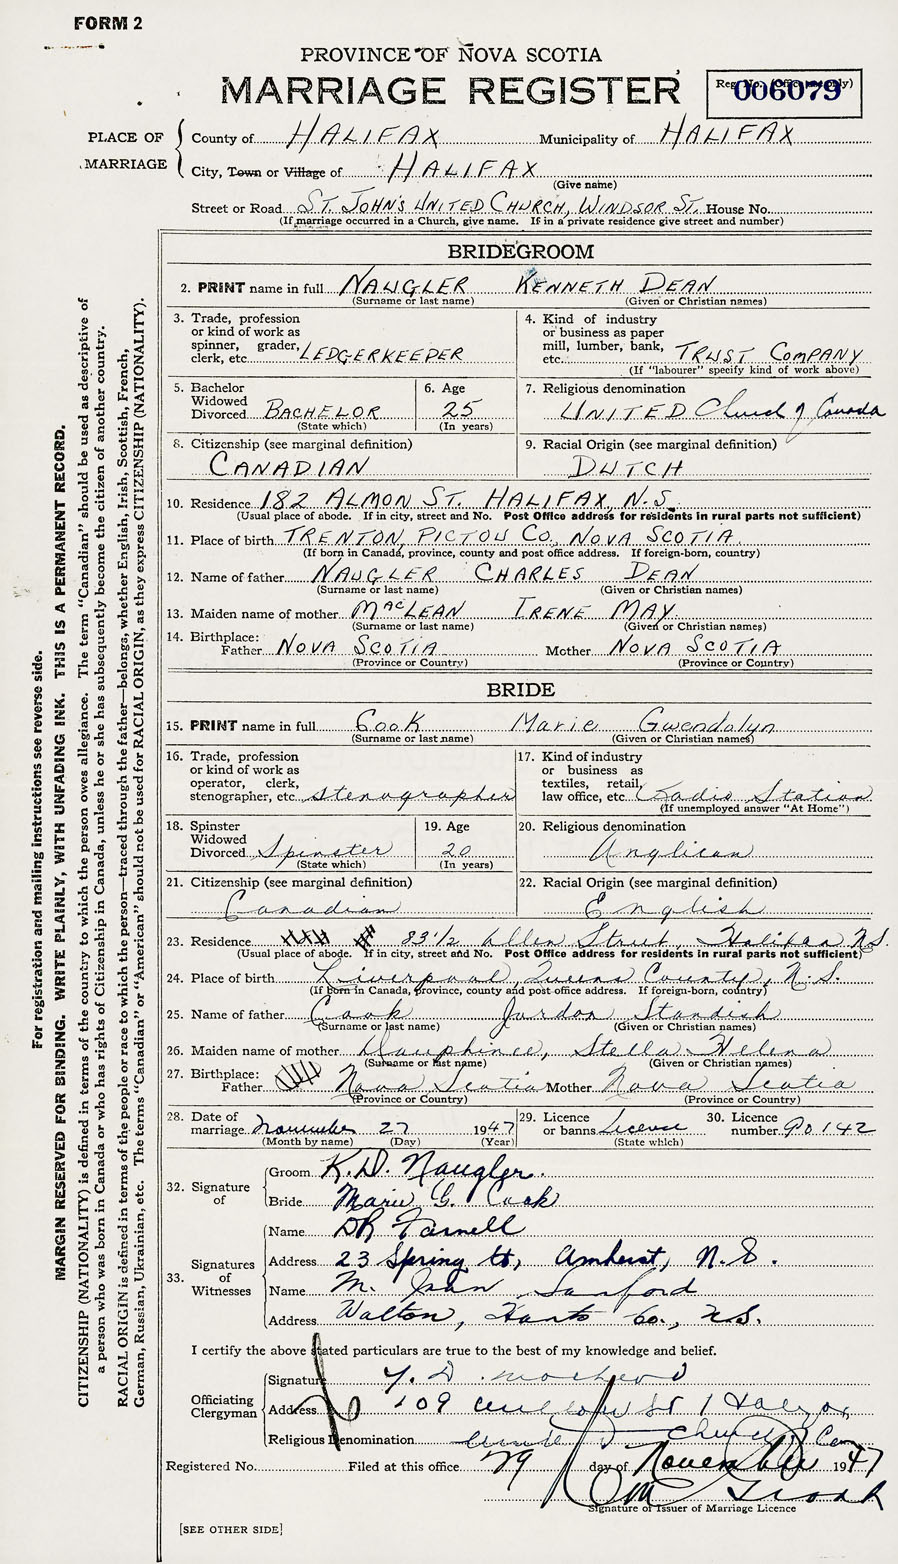 FORM 2
PROVINCE OF NOVA SCOTIA
MARRIAGE REGISTER
Reg. No. (Office use only)
006079
PLACE OF MARRIAGE
County of HALIFAX Municipality of HALIFAX
City, Town or Village of HALIFAX
(Give name)
Street or Road ST. JOHN'S UNITED CHURCH, WINDSOR ST. House No.
(If marriage occurred in a Church, give name. If in a private residence give street and number)
BRIDEGROOM
2. PRINT name in full NAUGLER KENNETH DEAN
(Surname or last name) (Given or Christian names)
3. Trade, profession
or kind of work as
spinner, grader,
clerk, etc. LEDGERKEEPER
4. Kind of industry
or business as paper
mill, lumber, bank,
etc. TRUST COMPANY
(If "labourer" specify kind of work above)
5. Bachelor
Widowed
Divorced BACHELOR
(State which)
6. Age
25
(In years)
7. Religious denomination
UNITED Church of Canada
8. Citizenship (see marginal definition)
CANADIAN
9. Racial Origin (see marginal definition)
DUTCH
10. Residence 182 ALMON ST. HALIFAX, N.S.
(Usual place of abode. If in city, street and No. Post Office address for residents in rural parts not sufficient)
11. Place of birth TRENTON, PICTOU CO. NOVA SCOTIA
(If born in Canada, province, county and post office address. If foreign-born, country)
12. Name of father NAUGLER CHARLES DEAN
(Surname or last name) (Given or Christian names)
13. Maiden name of mother MacLEAN IRENE MAY
(Surname or last name) (Given or Christian names)
14. Birthplace:
Father NOVA SCOTIA Mother NOVA SCOTIA
(Province or Country) (Province or Country)
BRIDE
15. PRINT name in full Cook Marie Gwendolyn
(Surname or last name) (Given or Christian names)
16. Trade, profession
or kind of work as
operator, clerk,
stenographer, etc. stenographer
17. Kind of industry
or business as
textiles, retail,
law office, etc. Radio Station
(If unemployed answer "At Home")
18. Spinster
Widowed
Divorced Spinster
(State which)
19. Age
20
(In years)
20. Religious denomination
Anglican
21. Citizenship (see marginal definition)
Canadian
22. Racial Origin (see marginal definition)
English
23. Residence 83½ Allen Street, Halifax N.S.
(Usual place of abode. If in city, street and No. Post Office address for residents in rural parts not sufficient)
24. Place of birth Liverpool, Queens County, N.S.
(If born in Canada, province, county and post office address. If foreign-born, country)
25. Name of father Cook Jordon Standish
(Surname or last name) (Given or Christian names)
26. Maiden name of mother Dauphinee, Stella Helena
(Surname or last name) (Given or Christian names)
27. Birthplace:
Father Nova Scotia Mother Nova Scotia
(Province or Country) (Province or Country)
28. Date of
marriage November 27 1947
(Month by name) (Day) (Year)
29. Licence
or banns License
(State which)
30. Licence
number 90142
32. Signature of
Groom K.D. Naugler.
Bride Marie G. Cook
33. Signatures of Witnesses
Name DR Farnell
Address 23 Spring St, Amherst, N.S.
Name M. Jean Sanford
Address Walton, Hants Co., N.S.
I certify the above stated particulars are true to the best of my knowledge and belief.
Officiating Clergyman
Signature
Address 109 St
Religious Denomination Church
Registered No. Filed at this office 29 day of November 1947
Signature of Issuer of Marriage Licence
[SEE OTHER SIDE]
For registration and mailing instructions see reverse side.
MARGIN RESERVED FOR BINDING. WRITE PLAINLY, WITH UNFADING INK. THIS IS A PERMANENT RECORD.
CITIZENSHIP (NATIONALITY) is defined in terms of the country to which the person owes allegiance. The term "Canadian" should be used as descriptive of
a person who was born in Canada or who has rights of Citizenship in Canada, unless he or she has subsequently become the citizen of another country.
RACIAL ORIGIN is defined in terms of the people or race to which the person—traced through the father—belongs, whether English, Irish, Scottish, French,
German, Russian, Ukrainian, etc. The terms "Canadian" or "American" should not be used for RACIAL ORIGIN, as they express CITIZENSHIP (NATIONALITY).